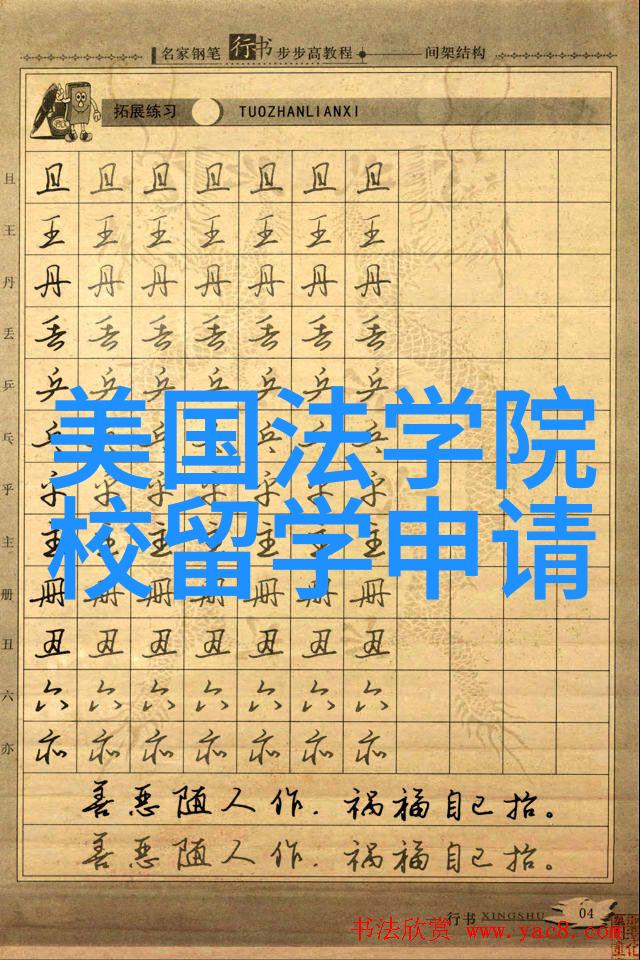 名家钢笔行书步步高教程——间架结构
拓展练习 TUOZHANLIANXI
且 且 且 且 且 且 且 且
王 王 王 王 王 王 王 王
丹 丹 丹 丹 丹 丹 丹 丹
丢 丢 丢 丢 丢 丢 丢 丢
乒 乒 乒 乒 乒 乒 乒 乒
乓 乓 乓 乓 乓 乓 乓 乓
美国法学院
乎 乎 乎 乎 乎 乎 乎 乎
主 主 主 主 主 主 主 主
校留学申请
册 册 册 册 册 册 册 册
丑 丑 丑 丑 丑 丑 丑 丑
六 六 六 六 六 六 六 六
亦 亦 亦 亦 亦 亦 亦 亦
善恶随人作，祸福自己招。
善恶随人作，祸福自己招。
行书 XINGSHU 04
书法欣赏 www.yac8.com